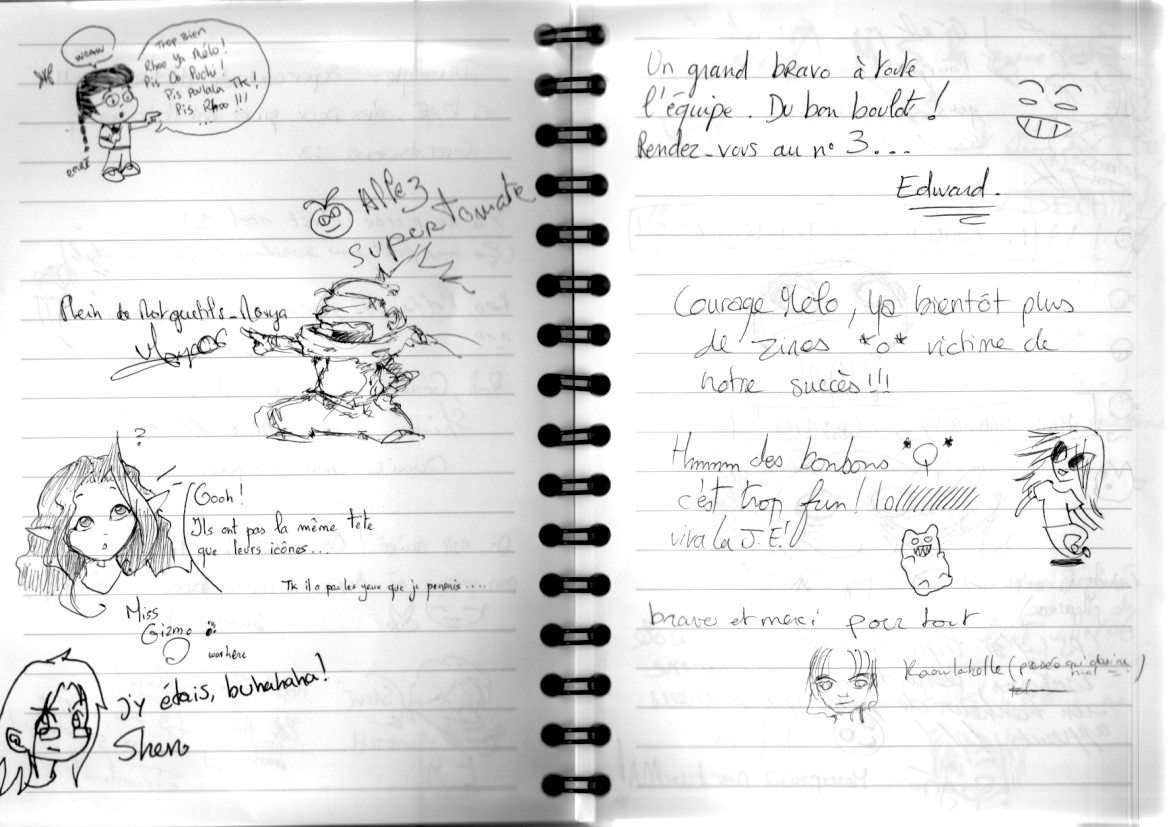 WOAW
Trop Bien
Rhoo Ya Mélo !
Pis Oo Puchi !
Pis Poulala TK !
Pis Rhoo !!!
...
Allez
super tomate
Plein de
?
Oooh !
Ils ont pas la même tête
que leurs icônes...
TK il a pas les yeux que je pensais....
Miss
Gizmo
was here
J'y étais, buhahaha!
Shen
Un grand bravo à toute
l'équipe. Du bon boulot !
Rendez-vous au n° 3...
Edward.
Courage Melo, ya bientôt plus
de zines *o* victime de
notre succès !!!
Hmmm des bonbons *O*
c'est trop fun ! lol//////////
viva la J.E!
bravo et merci pour tout